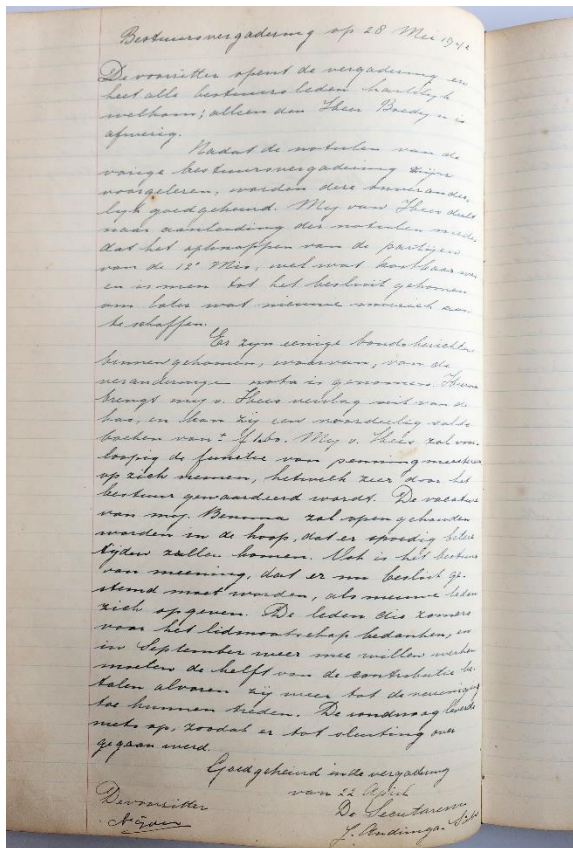 Bestuursvergadering op 28 Mei 194
De voorzitter opent de vergadering en
heet alle bestuursleden hartelijk
welkom; alleen den Heer Boedy is
afwezig.
Nadat de notulen van de
vorige bestuursvergadering zijn
voorgelezen, worden deze onverander-
lijk goedgekeurd. Mej van Thees deelt
naar aanleiding der notulen mede,
dat het opknappen van de partijen
van de 12e Mis, wel wat kostbaar was
en is men tot het besluit gekomen
om later wat nieuwe muziek aan
te schaffen.
Er zijn eenige bondsberichten
binnengekomen, waarvan, van de
veranderinge nota is genomen. Hierna
brengt mej v. Thees verslag uit van de
kas, en kan zij een voordeelig saldo
boeken van ± f. Mej v. Thees zal voor-
loopig de functie van penningmeesteres
op zich nemen, hetwelk zeer door het
bestuur gewaardeerd wordt. De vacature
van mej. Benoma zal open gehouden
worden in de hoop, dat er spoedig betere
tijden zullen komen. Ook is het bestuur
van meening, dat er nu beslist ge-
stemd moet worden, als nieuwe leden
zich opgeven. De leden die zomers
voor het lidmaatschap bedanken, en
in September weer mee willen werken
moeten de helft van de contributie be-
talen alvoren zij weer tot de vereeniging
toe kunnen treden. De rondvraag leverde
niets op, zoodat er tot sluiting over
gegaan werd.
Goedgekeurd in de vergadering
van 22 April
De voorzitter
De Secretaresse
J. Andinga